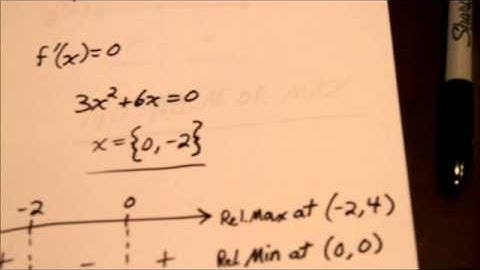 f'(x)=0
3x²+6x=0
x={0,-2}
-2 0
Rel. Max at (-2,4)
+ - + Rel. Min at (0,0)
Sharpie